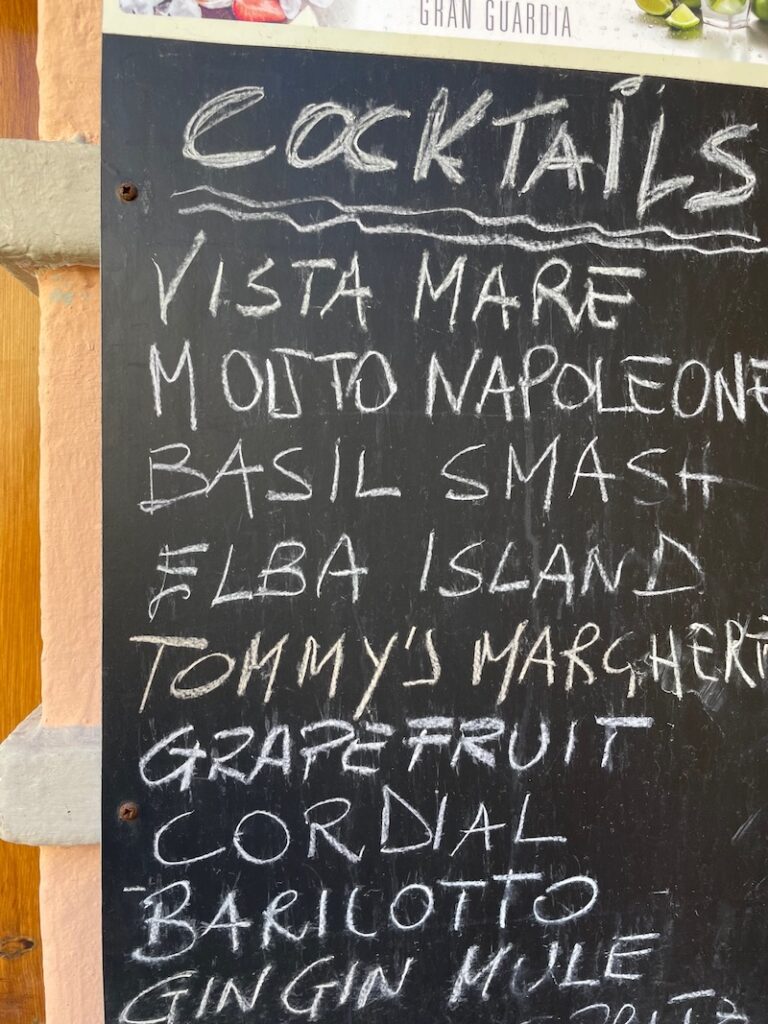 GRAN GUARDIA
COCKTAILS
VISTA MARE
MOJITO NAPOLEONE
BASIL SMASH
ELBA ISLAND
TOMMY'S MARGHERI
GRAPEFRUIT
CORDIAL
BARILOTTO
GINGIN MULE